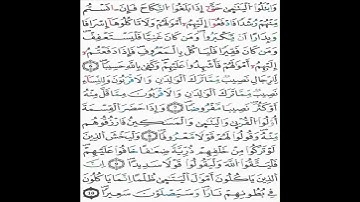 وَابْتَلُوا۟ الْيَتَٰمَىٰ حَتَّىٰٓ إِذَا بَلَغُوا۟ النِّكَاحَ فَإِنْ ءَانَسْتُم
مِّنْهُمْ رُشْدًا فَادْفَعُوٓا۟ إِلَيْهِمْ أَمْوَٰلَهُمْ وَلَا تَاكُلُوهَآ إِسْرَافًا
وَبِدَارًا أَنْ يَّكْبَرُوا۟ وَمَن كَانَ غَنِيًّا فَلْيَسْتَعْفِفْ
وَمَن كَانَ فَقِيرًا فَلْيَاكُلْ بِالْمَعْرُوفِ فَإِذَا دَفَعْتُمُۥٓ
إِلَيْهِمُۥٓ أَمْوَٰلَهُمْ فَأَشْهِدُوا۟ عَلَيْهِمْ وَكَفَىٰ بِاللَّهِ حَسِيبًا
لِّلرِّجَالِ نَصِيبٌ مِّمَّا تَرَكَ الْوَٰلِدَٰنِ وَالَاقْرَبُونَ وَلِلنِّسَآءِ
نَصِيبٌ مِّمَّا تَرَكَ الْوَٰلِدَٰنِ وَالَاقْرَبُونَ مِمَّا قَلَّ مِنْهُ
أَوْ كَثُرَ نَصِيبًا مَّفْرُوضًا وَإِذَا حَضَرَ الْقِسْمَةَ
أُو۟لُوا۟ الْقُرْبَىٰ وَالْيَتَٰمَىٰ وَالْمَسَٰكِينُ فَارْزُقُوهُم
مِّنْهُ وَقُولُوا۟ لَهُمْ قَوْلًا مَّعْرُوفًا وَلْيَخْشَ الَّذِينَ
لَوْ تَرَكُوا۟ مِنْ خَلْفِهِمْ ذُرِّيَّةً ضِعَٰفًا خَافُوا۟ عَلَيْهِمْ
فَلْيَتَّقُوا۟ اللَّهَ وَلْيَقُولُوا۟ قَوْلًا سَدِيدًا إِنَّ
الَّذِينَ يَاكُلُونَ أَمْوَٰلَ الْيَتَٰمَىٰ ظُلْمًا إِنَّمَا يَاكُلُونَ
فِي بُطُونِهِمْ نَارًا وَسَيَصْلَوْنَ سَعِيرًا